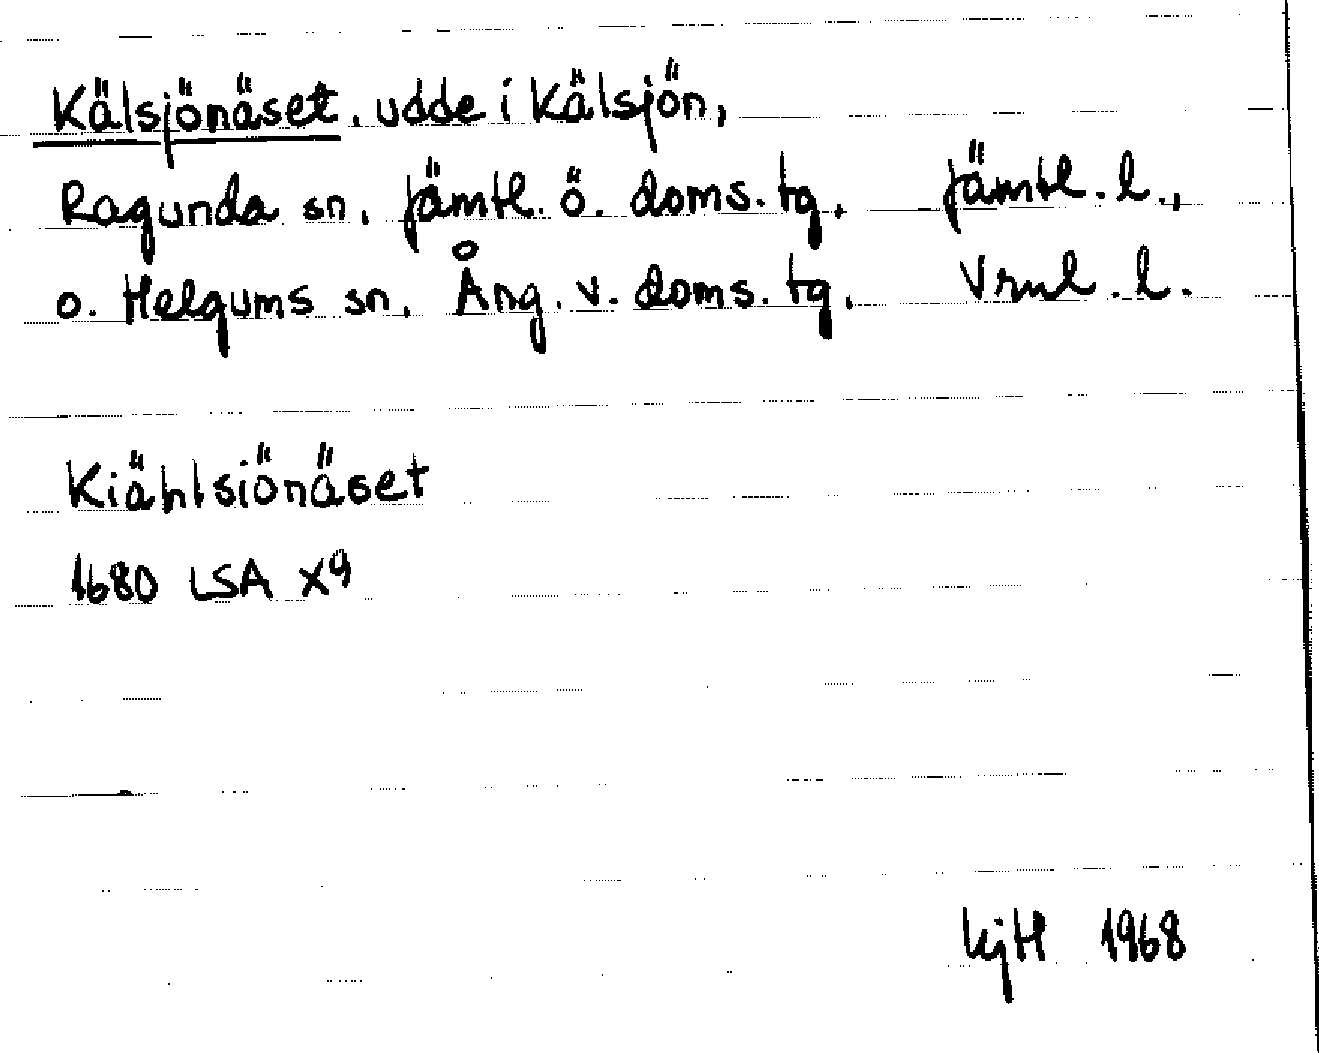 Kälsjönäset, udde i Kälsjön,
Ragunda sn, Jämtl. ö. doms. tg, Jämtl. l.,
o. Helgums sn, Ång. v. doms. tg, Vrnl. l.
Kiählsiönäset
1680 LSA X9
KjH 1968